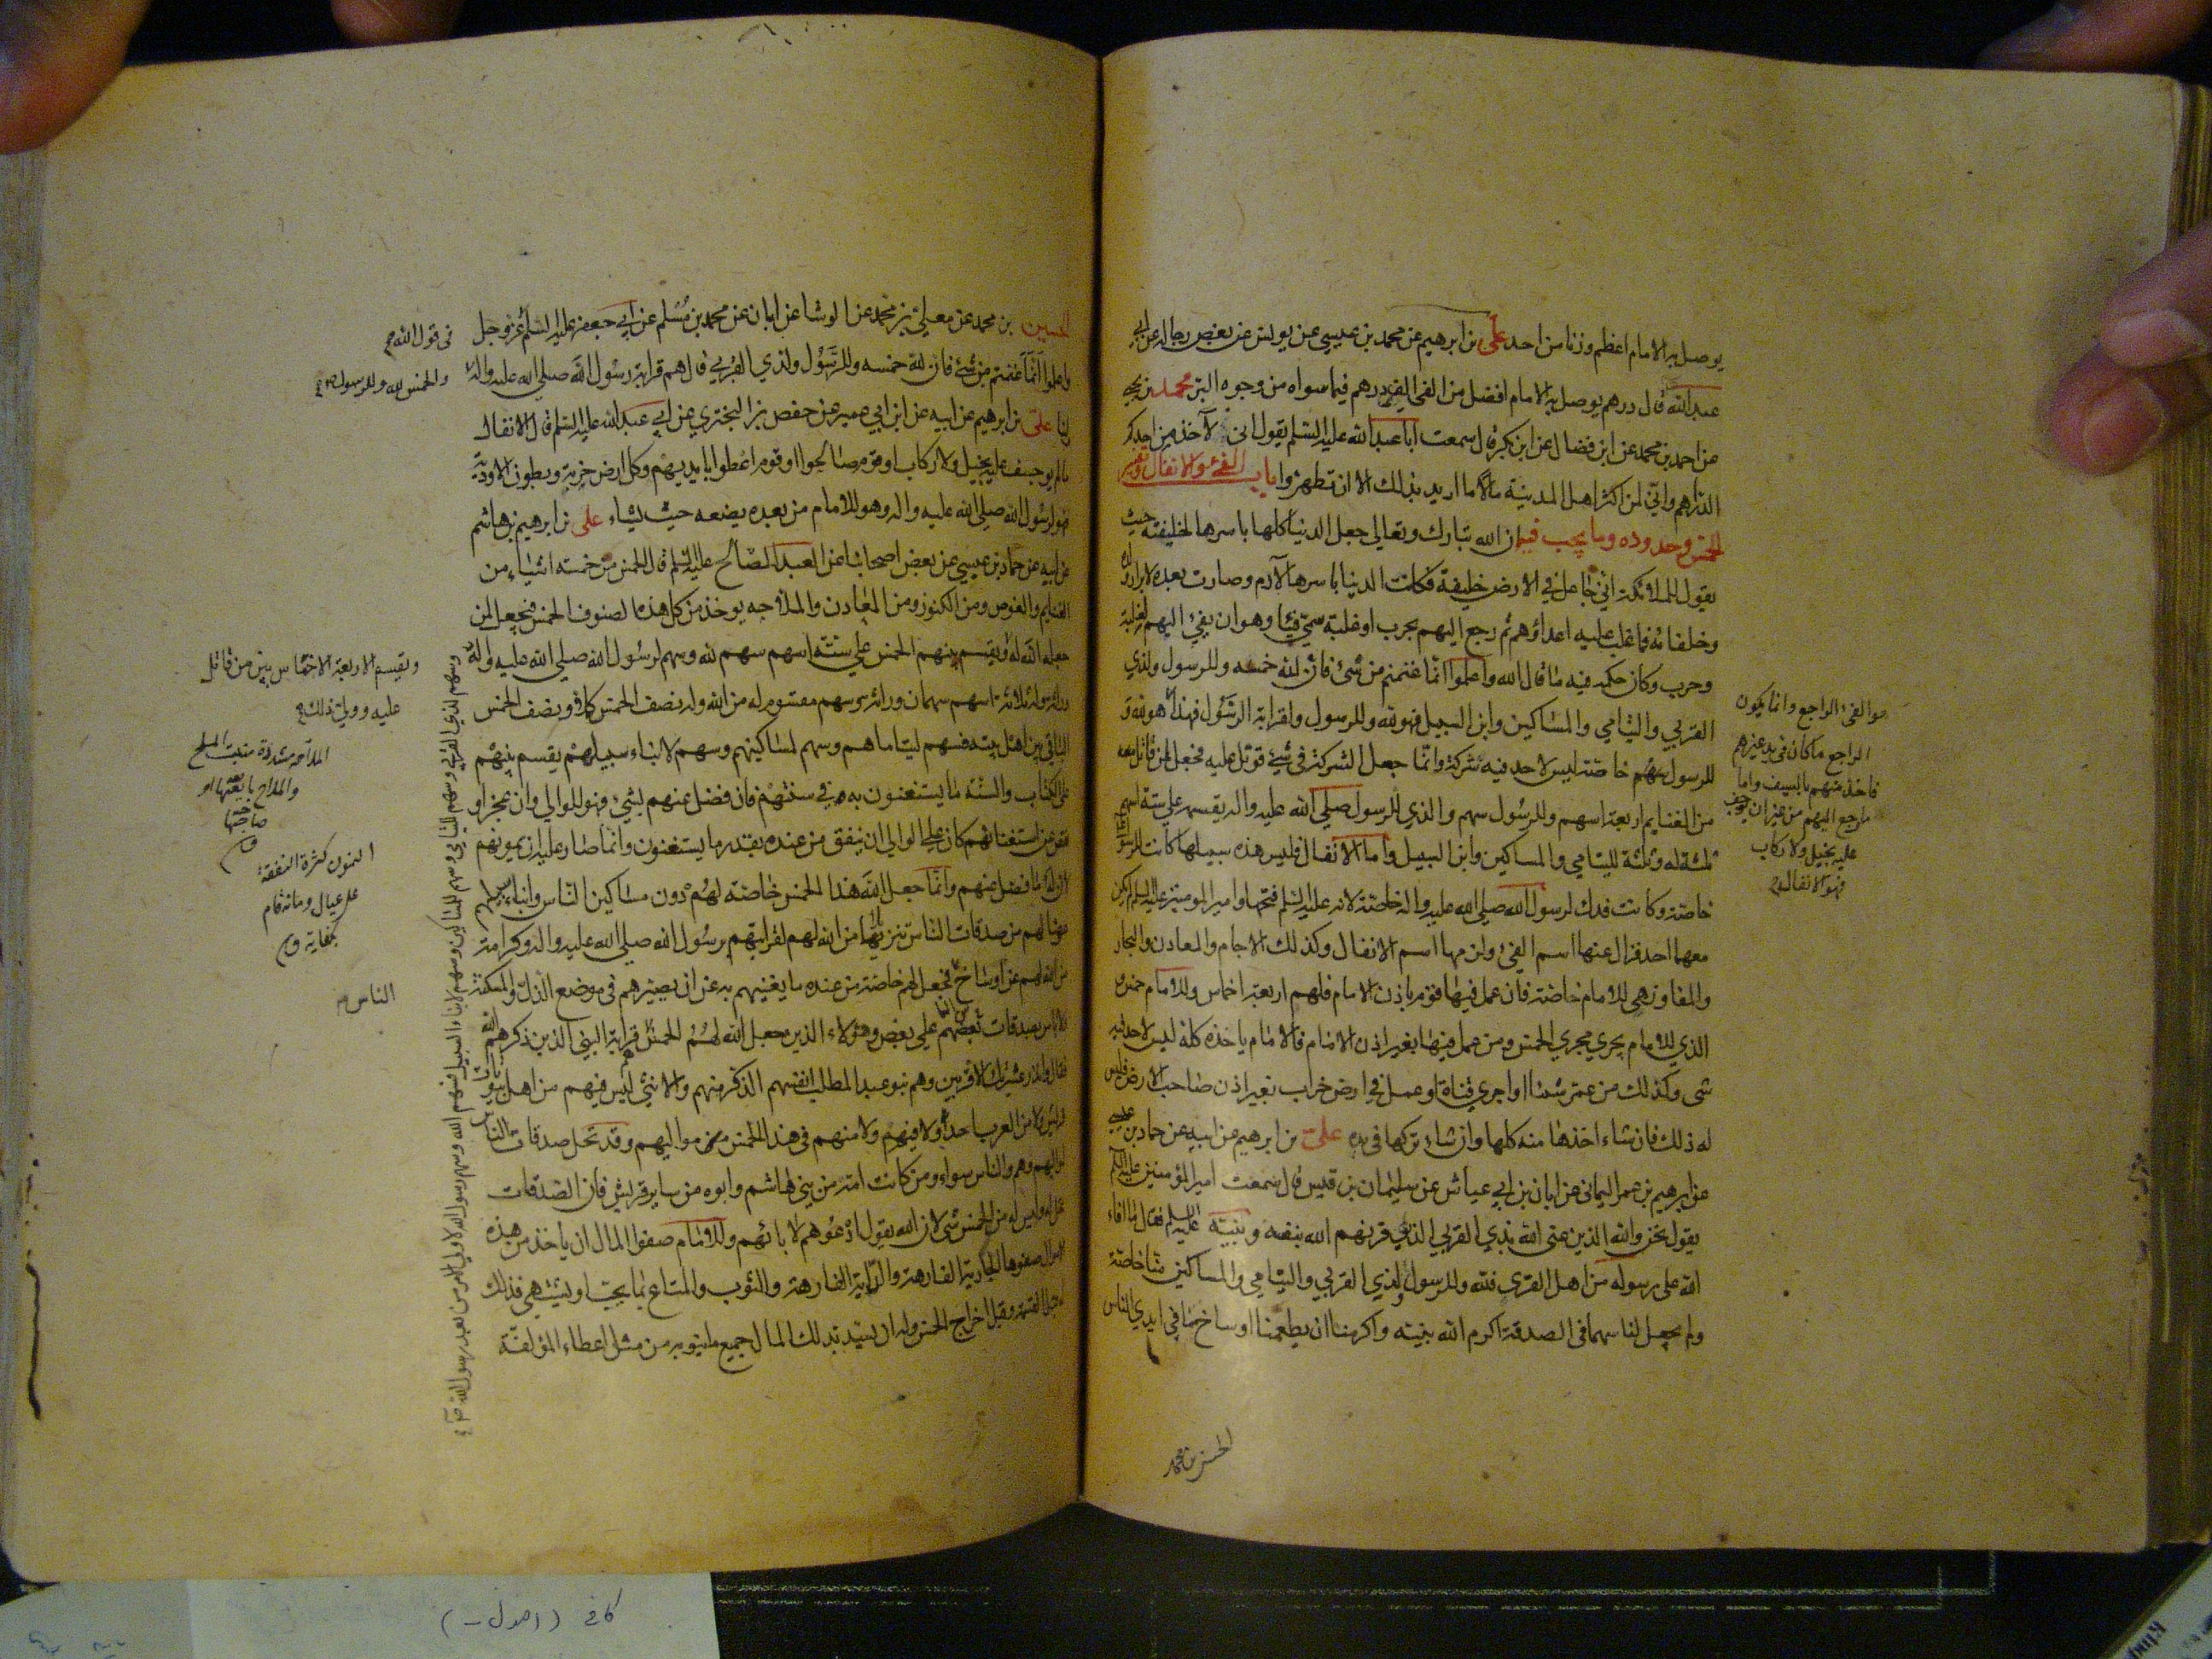 يوصل به الامام اعظم وزنا من احد على بن ابرهيم عن محمد بن عيسى عن يونس عن بعض رجاله عن ابى
عبد الله قال درهم يوصل به الامام افضل من الفى الف درهم فيما سواه من وجوه البر محمد بن يحيى
عن احمد بن محمد عن ابن فضال عن ابن بكير قال سمعت ابا عبد الله عليه السلم يقول انى لآخذ من احدكم
الدرهم وانى لمن اكثر اهل المدينة مالا ما اريد بذلك الا ان تطهروا باب الفئ والانفال وتفسير
الخمس وحدوده وما يجب فيه ان الله تبارك وتعالى جعل الدنيا كلها باسرها لخليفته حيث
يقول للملائكة انى جاعل في الارض خليفة فكانت الدنيا باسرها لآدم وصارت بعده لابرار ولده
وخلفائه فما غلب عليه اعداؤهم ثم رجع اليهم بحرب او غلبة سمى فيئا وهو ان يفئ اليهم بغلبة
وحرب وكان حكمه فيه ما قال الله واعلموا انما غنمتم من شئ فان لله خمسه وللرسول ولذي
القربى واليتامى والمساكين وابن السبيل فهو لله وللرسول ولقرابة الرسول فهذا هو الفئ
الراجع وانما يكون الراجع ما كان فى يد غيرهم
فاخذ منهم بالسيف واما
ما رجع اليهم من غير ان يوجف
عليه بخيل ولا ركاب
فهو الانفال
للرسول خاصة ليس لاحد فيه شركة وانما جعل الشركة فى شئ قوتل عليه فجعل لمن قاتل
من الغنايم اربعة اسهم وللرسول سهم والذي للرسول صلى الله عليه واله يقسمه على ستة اسهم
ثلثة له وثلثة لليتامى والمساكين وابن السبيل واما الانفال فليس هذه سبيلها كانت للرسول
خاصة وكانت فدك لرسول الله صلى الله عليه واله خاصة لانه عليه السلم فتحها وامير المومنين عليه السلم لم يكن
معهما احد فزال عنها اسم الفئ ولزمها اسم الانفال وكذلك الاجام والمعادن والبحار
والمفاوز هى للامام خاصة فان عمل فيها قوم باذن الامام فلهم اربعة اخماس وللامام خمس
الذي للامام يجري مجري الخمس ومن عمل فيها بغير اذن الامام فالامام ياخذه كله ليس لاحد فيه
شى وكذلك من عمر شيئا او اجرى قناة او عمل في ارض خراب بغير اذن صاحب الارض فليس
له ذلك فان شاء اخذها منه كلها وان شاء تركها فى يده على بن ابرهيم عن ابيه عن حماد بن عيسى
عن ابرهيم بن عمر اليمانى عن ابان بن ابي عياش عن سليمان بن قيس قال سمعت امير المؤمنين عليه السلم
يقول نحن والله الذين عنى الله بذي القربى الذين قرنهم الله بنفسه ونبيه عليه السلم فقال ما افاء
الله على رسوله من اهل القرى فلله وللرسول ولذي القربى واليتامى والمساكين منا خاصة
ولم يجعل لنا سهما فى الصدقة اكرم الله نبيه واكرمنا ان يطعمنا اوساخ ما في ايدي الناس
الحسين بن محمد
الحسين بن محمد عن معلى بن محمد عن الوشا عن ابان عن محمد بن مسلم عن ابي جعفر عليه السلم عز وجل
فى قول الله
واعلموا انما غنمتم من شئ فان لله خمسه وللرسول ولذي القربى قال هم قرابة رسول الله صلى الله عليه واله
والخمس لله وللرسول
ولنا على بن ابرهيم عن ابيه عن ابن ابي عمير عن حفص بن البختري عن ابي عبد الله عليه السلم قال الانفال
ما لم يوجف عليه بخيل ولا ركاب او قوم صالحوا او قوم اعطوا بايديهم وكل ارض خربة وبطون الاودية
فهو لرسول الله صلى الله عليه واله وهو للامام من بعده يضعه حيث يشاء على بن ابرهيم بن هاشم
عن ابيه عن حماد بن عيسى عن بعض اصحابنا عن العبد الصالح عليه السلم قال الخمس من خمسة اشياء من
الغنايم والغوص ومن الكنوز ومن المعادن والملاحه يوخذ من كل هذه الصنوف الخمس فيجعل لمن
جعله الله له ويقسم بينهم الخمس على ستة اسهم سهم لله وسهم لرسول الله صلى الله عليه واله
ويقسم الاربعة الاخماس بين من قاتل
عليه وولى ذلك
وسهم لذي القربى وسهم لليتامى وسهم للمساكين وسهم لابناء السبيل فسهم الله وسهم رسول الله لاولى الامر من بعد رسول الله
وراثة وله ثلاثة اسهم سهمان وراثة وسهم مقسوم له من الله وله نصف الخمس كملا ونصف الخمس
الباقى بين اهل بيته فسهم ليتاماهم وسهم لمساكينهم وسهم لابناء سبيلهم يقسم بينهم
على الكتاب والسنة ما يستغنون به فى سنتهم فان فضل عنهم شئ فهو للوالي وان عجز او
نقص عن استغنائهم كان على الوالي ان ينفق من عنده بقدر ما يستغنون وانما صار عليه ان يمونهم
الملاحة مشددة منبت الملح
والملاح بايعه او
صاحبه
ق
المون كثرة النفقة
على عيال ومانه قام
بكفايته ق
لان له ما فضل عنهم وانما جعل الله هذا الخمس خاصة لهم دون مساكين الناس وابناء سبيلهم
عوضا لهم من صدقات الناس تنزيها من الله لهم لقرابتهم برسول الله صلى الله عليه واله وكرامة
من الله لهم عن اوساخ الناس فجعل لهم خاصة من عنده ما يغنيهم به عن ان يصيرهم فى موضع الذل والمسكنة
ولا باس بصدقات بعضهم على بعض وهؤلاء الذين جعل الله لهم الخمس هم قرابة النبى الذين ذكرهم الله
فقال وانذر عشيرتك الاقربين وهم بنو عبد المطلب انفسهم الذكر منهم والانثى ليس فيهم من اهل بيوتات
قريش ولا من العرب احد ولا فيهم ولا منهم فى هذا الخمس من مواليهم وقد تحل صدقات الناس
لمواليهم وهم والناس سواء ومن كانت امه من بني هاشم وابوه من ساير قريش فان الصدقات
تحل له وليس له من الخمس شى لان الله يقول ادعوهم لابائهم وللامام صفو المال ان ياخذ من هذه
الاموال صفوها الجارية الفارهة والدابة الفارهة والثوب والمتاع بما يحب او يشتهى فذلك
له قبل القسمة وقبل اخراج الخمس وله ان يسد بذلك المال جميع ما ينوبه من مثل اعطاء المؤلفة
كافى (اصول -)